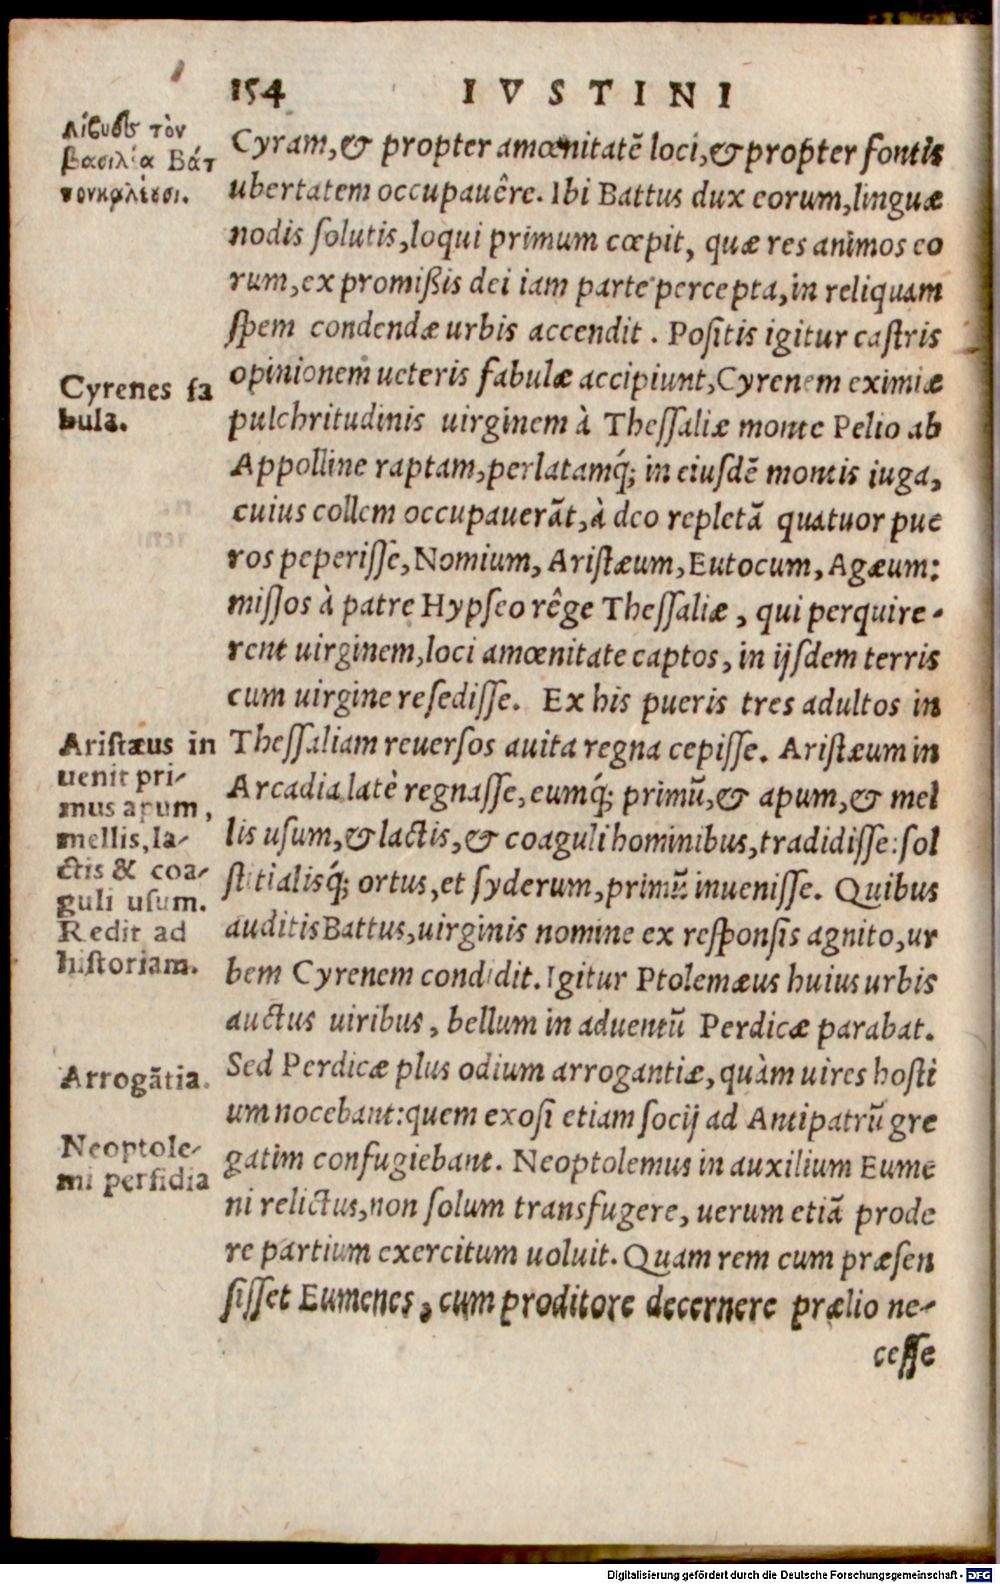 154 IVSTINI
Λίβυες τὸν
βασιλέα Βάτ
τον καλέουσι.
Cyram, & propter amœnitatẽ loci, & propter fontis
ubertatem occupauêre. Ibi Battus dux eorum, linguæ
nodis ſolutis, loqui primum cœpit, quæ res animos eo
rum, ex promißis dei iam parte percepta, in reliquam
ſpem condendæ urbis accendit. Poſitis igitur caſtris
opinionem ueteris fabulæ accipiunt, Cyrenem eximiæ
pulchritudinis uirginem à Theſſaliæ monte Pelio ab
Appolline raptam, perlatamq́; in eiuſdẽ montis iuga,
cuius collem occupauerãt, à deo repletã quatuor pue
ros peperiſſe, Nomium, Ariſtæum, Eutocum, Agæum:
miſſos à patre Hypſeo rêge Theſſaliæ, qui perquire-
rent uirginem, loci amœnitate captos, in ijſdem terris
cum uirgine reſediſſe. Ex his pueris tres adultos in
Theſſaliam reuerſos auita regna cepiſſe. Ariſtæum in
Arcadia latè regnaſſe, eumq́; primũ, & apum, & mel
lis uſum, & lactis, & coaguli hominibus, tradidiſſe: ſol
ſtitialisq́; ortus, et ſyderum, primũ inueniſſe. Quibus
auditis Battus, uirginis nomine ex reſponſis agnito, ur
bem Cyrenem condidit. Igitur Ptolemæus huius urbis
auctus uiribus, bellum in aduentũ Perdicæ parabat.
Sed Perdicæ plus odium arrogantiæ, quàm uires hoſti
um nocebant: quem exoſi etiam ſocij ad Antipatrũ gre
gatim confugiebant. Neoptolemus in auxilium Eume
ni relictus, non ſolum transfugere, uerum etiã prode
re partium exercitum uoluit. Quam rem cum præſen
ſiſſet Eumenes, cum proditore decernere prælio ne-
ceſſe
Cyrenes fa
bula.
Ariſtæus in
uenit pri-
mus apum,
mellis, la-
ctis & coa-
guli uſum.
Redit ad
hiſtoriam.
Arrogãtia.
Neoptole-
mi perfidia
Digitalisierung gefördert durch die Deutsche Forschungsgemeinschaft - DFG